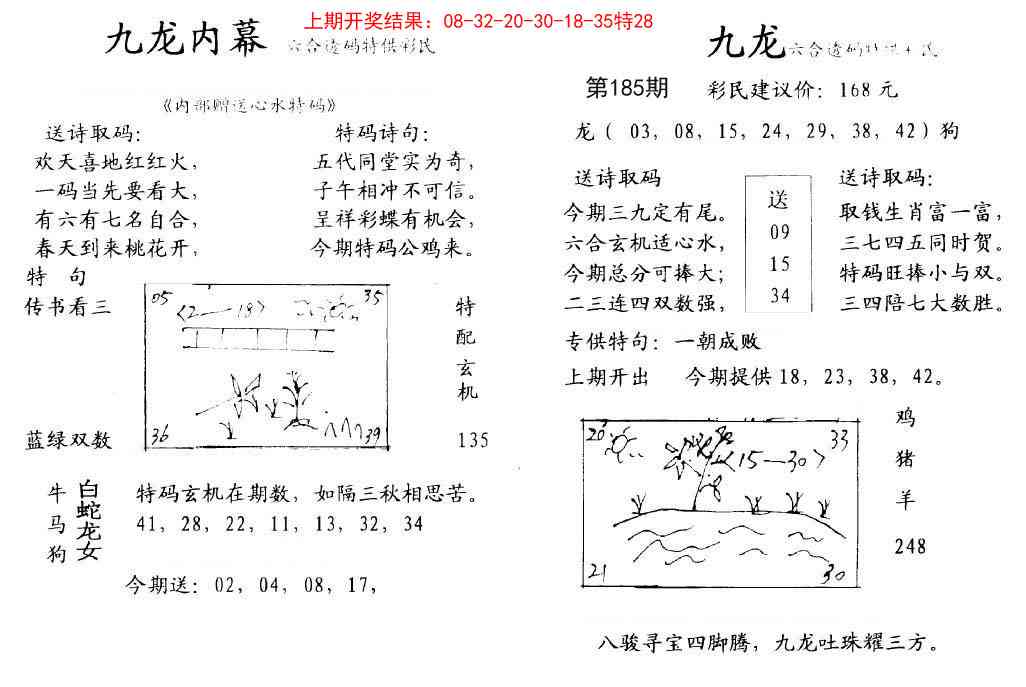 上期开奖结果：08-32-20-30-18-35特28
九龙内幕 六合透码特供彩民
《内部赠送心水特码》
送诗取码：
欢天喜地红红火，
一码当先要看大，
有六有七名自合，
春天到来桃花开，
特码诗句：
五代同堂实为奇，
子午相冲不可信。
呈祥彩蝶有机会，
今期特码公鸡来。
特 句
传书看三
蓝绿双数
05
35
<2—18>
36
39
特
配
玄
机
135
牛
马
狗
白蛇龙女
特码玄机在期数，如隔三秋相思苦。
41，28，22，11，13，32，34
今期送：02，04，08，17，
九龙 六合透码特供
第185期 彩民建议价：168元
龙（ 03，08，15，24，29，38，42）狗
送诗取码
今期三九定有尾。
六合玄机适心水，
今期总分可捧大；
二三连四双数强，
送
09
15
34
送诗取码：
取钱生肖富一富，
三七四五同时贺。
特码旺捧小与双。
三四陪七大数胜。
专供特句：一朝成败
上期开出 今期提供18，23，38，42。
20
33
<15—30>
21
30
鸡
猪
羊
248
八骏寻宝四脚腾，九龙吐珠耀三方。